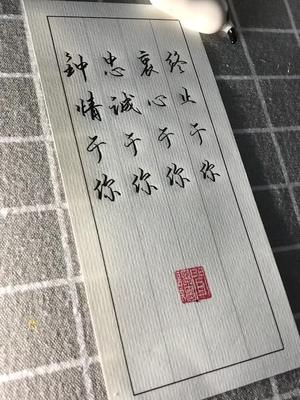 钟情于你
忠诚于你
衷心于你
终止于你